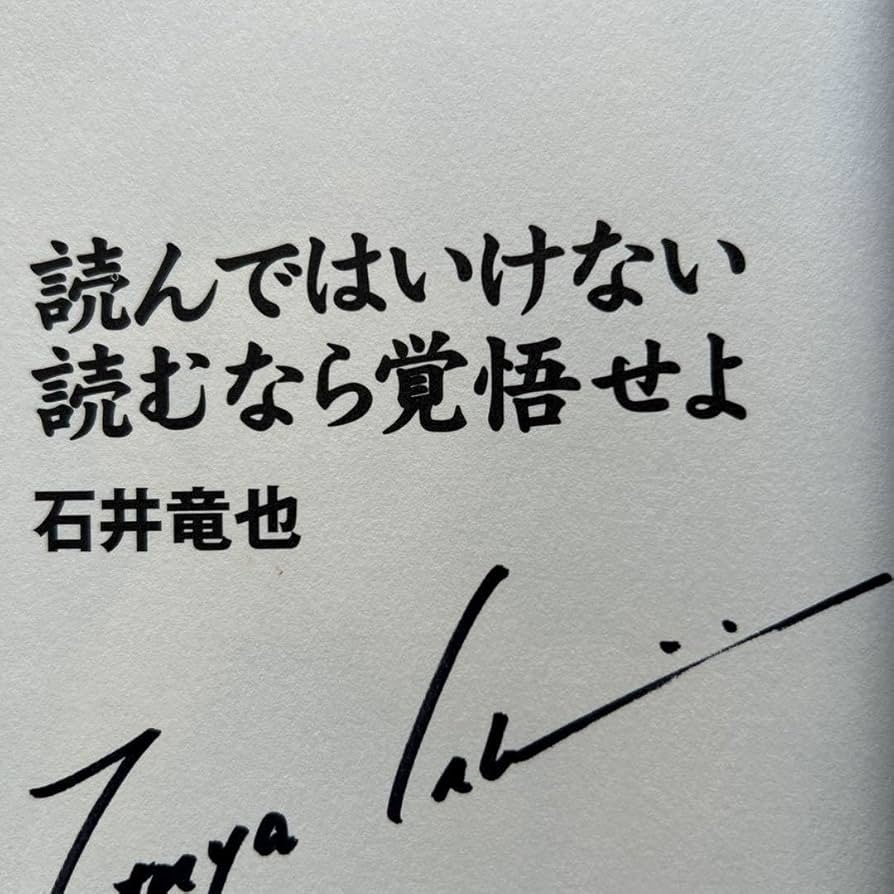 読んではいけない
読むなら覚悟せよ
石井竜也
Tatsuya Ishii